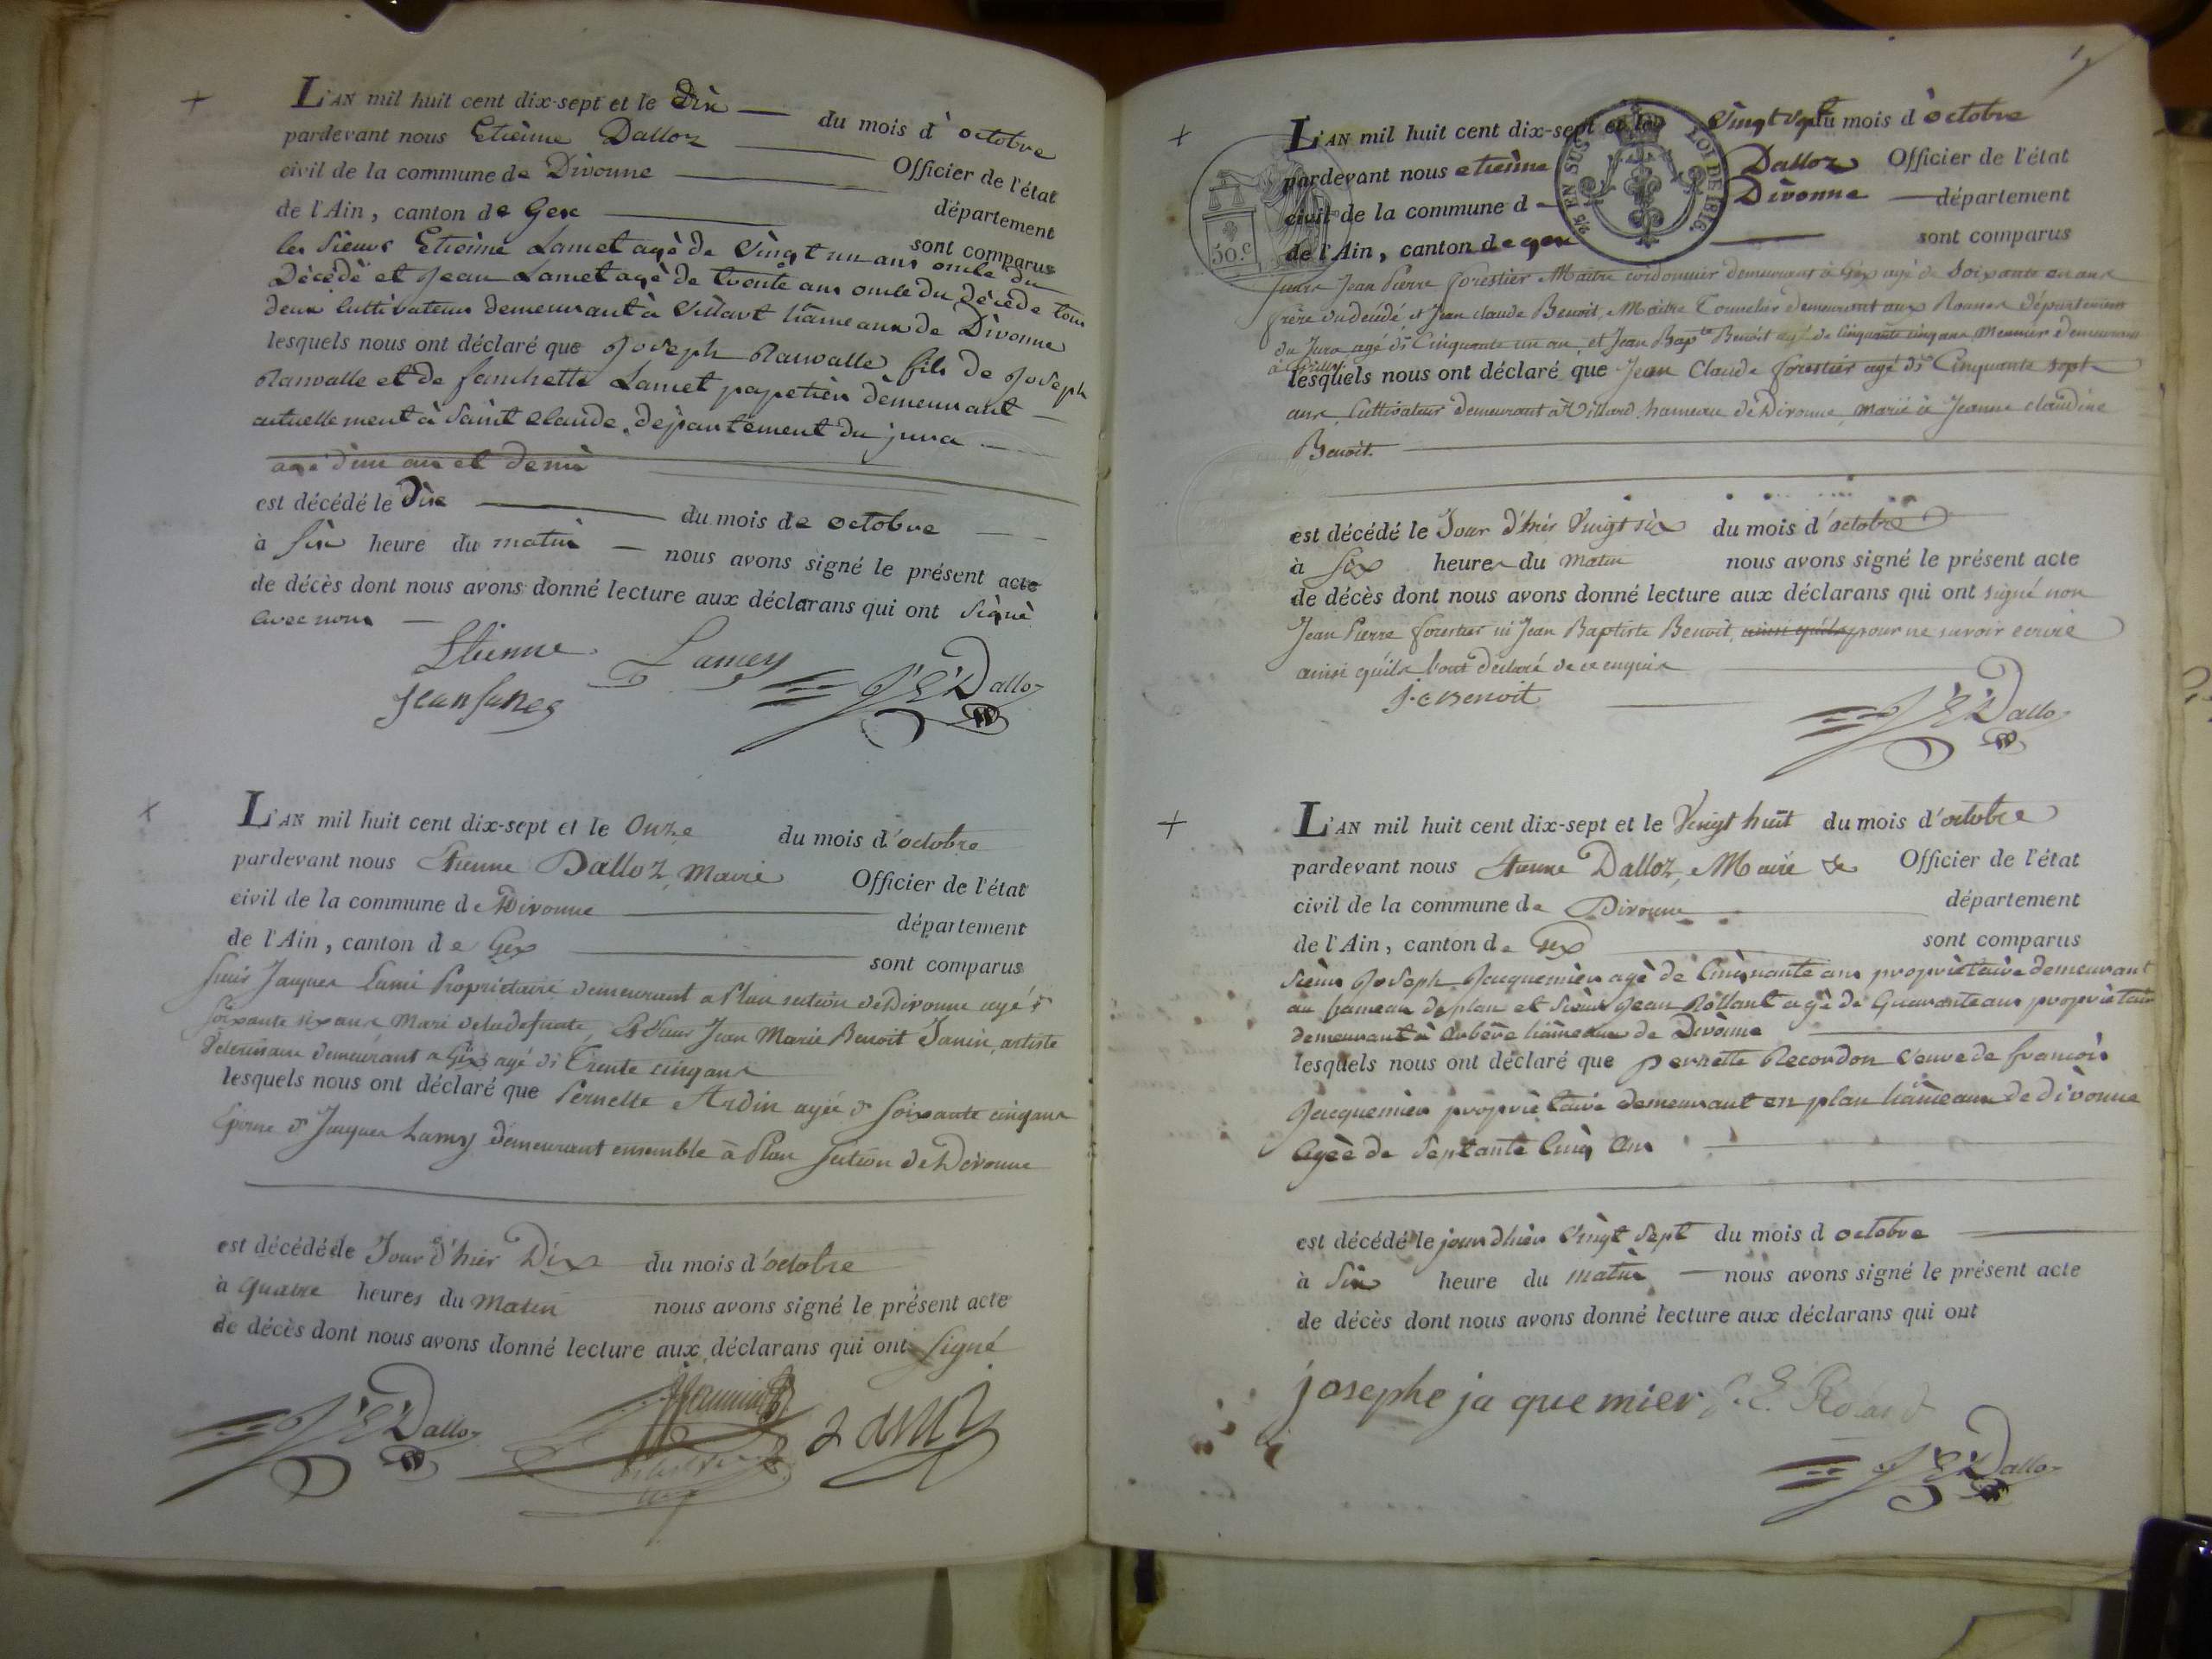 L'AN mil huit cent dix-sept et le Dix du mois d'octobre
pardevant nous Etienne Dalloz Officier de l'état
civil de la commune de Divonne département
de l'Ain, canton de Gex sont comparus
les Sieurs Etienne Lamet agè de Vingt un ans oncle du
Décédé et Jean Lamet agè de trente ans oncle du Décédé tous
deux Cultivateurs demeurant à Villart hâmeaux de Divonne
lesquels nous ont déclaré que Joseph fils de Joseph
et de fanchette Lamet papetier dèmeurant
actuellement à Saint Claude, département du jura
agé d'un an et demi
est décédé le Dix du mois de octobre
à Six heure du matin nous avons signé le présent acte
de décès dont nous avons donné lecture aux déclarans qui ont Signè
avec nous
Etienne Lamey
Dalloz
L'AN mil huit cent dix-sept et le Onze du mois d'octobre
pardevant nous Etienne Dalloz, Maire Officier de l'état
civil de la commune de Divonne département
de l'Ain, canton de Gex sont comparus
Sieur Jacques Lami Propriétaire demeurant a Plan section de Divonne agé de
soixante six ans, Mari de la defunte, Et Sieur Jean Marie Benoit Janin, artiste
Véterinaire demeurant a Gex agé de Trente cinq ans
lesquels nous ont déclaré que Pernette Ardin agée de soixante cinq ans
Epouse de Jacques Lamy demeurant ensemble à Plan section de Divonne
est décédée le Jour d'hier Dix du mois d'octobre
à quatre heures du Matin nous avons signé le présent acte
de décès dont nous avons donné lecture aux déclarans qui ont signé
Dalloz Lamy
L'AN mil huit cent dix-sept et le Vingt Sept du mois d'octobre
pardevant nous etienne Dalloz Officier de l'état
civil de la commune de Divonne département
de l'Ain, canton de gex sont comparus
50.c
EN SUS LOI DE 1816.
Sieurs Jean Pierre forestier Maitre cordonnier demeurant à Gex agé de Soixante un ans
frère du décédé et Jean claude Benoit, Maître Tonnelier demeurant aux Rousses département
du Jura agé de Cinquante un an, et Jean Bapte Benoit agé de cinquante cinq ans Meunier demeurant
lesquels nous ont déclaré que Jean Claude forestier agé de Cinquante sept
ans, Cultivateur demeurant à Villard, hameau de Divonne, marié à Jeanne claudine
Benoit.
est décédé le Jour d'hier Vingt six du mois d'octobre
à Six heures du Matin nous avons signé le présent acte
de décès dont nous avons donné lecture aux déclarans qui ont signé non
Jean Pierre forestier ni Jean Baptiste Benoit, ainsi qu'ils pour ne savoir ecrire
ainsi qu'ils l'ont déclaré de ce enquis
J.C Benoit
Dalloz
L'AN mil huit cent dix-sept et le Vingt huit du mois d'octobre
pardevant nous Etienne Dalloz, Maire & Officier de l'état
civil de la commune de Divonne département
de l'Ain, canton de Gex sont comparus
Sieur Joseph Jacquemier agè de Cinquante ans propriètaire demeurant
au hameau de plan et Sieur Jean Rollant agè de Quarante ans propriètaire
demeurant à arbère hâmeaux de Divonne
lesquels nous ont déclaré que pernette Recordon veuve de francois
Jacquemier propriètaire demeurant en plan hâmeaux de divonne
agèe de Septante Cinq ans
est décédé le jour dhier Vingt Sept du mois d octobre
à Six heure du matin nous avons signé le présent acte
de décès dont nous avons donné lecture aux déclarans qui ont
josephe jaquemier
Dalloz